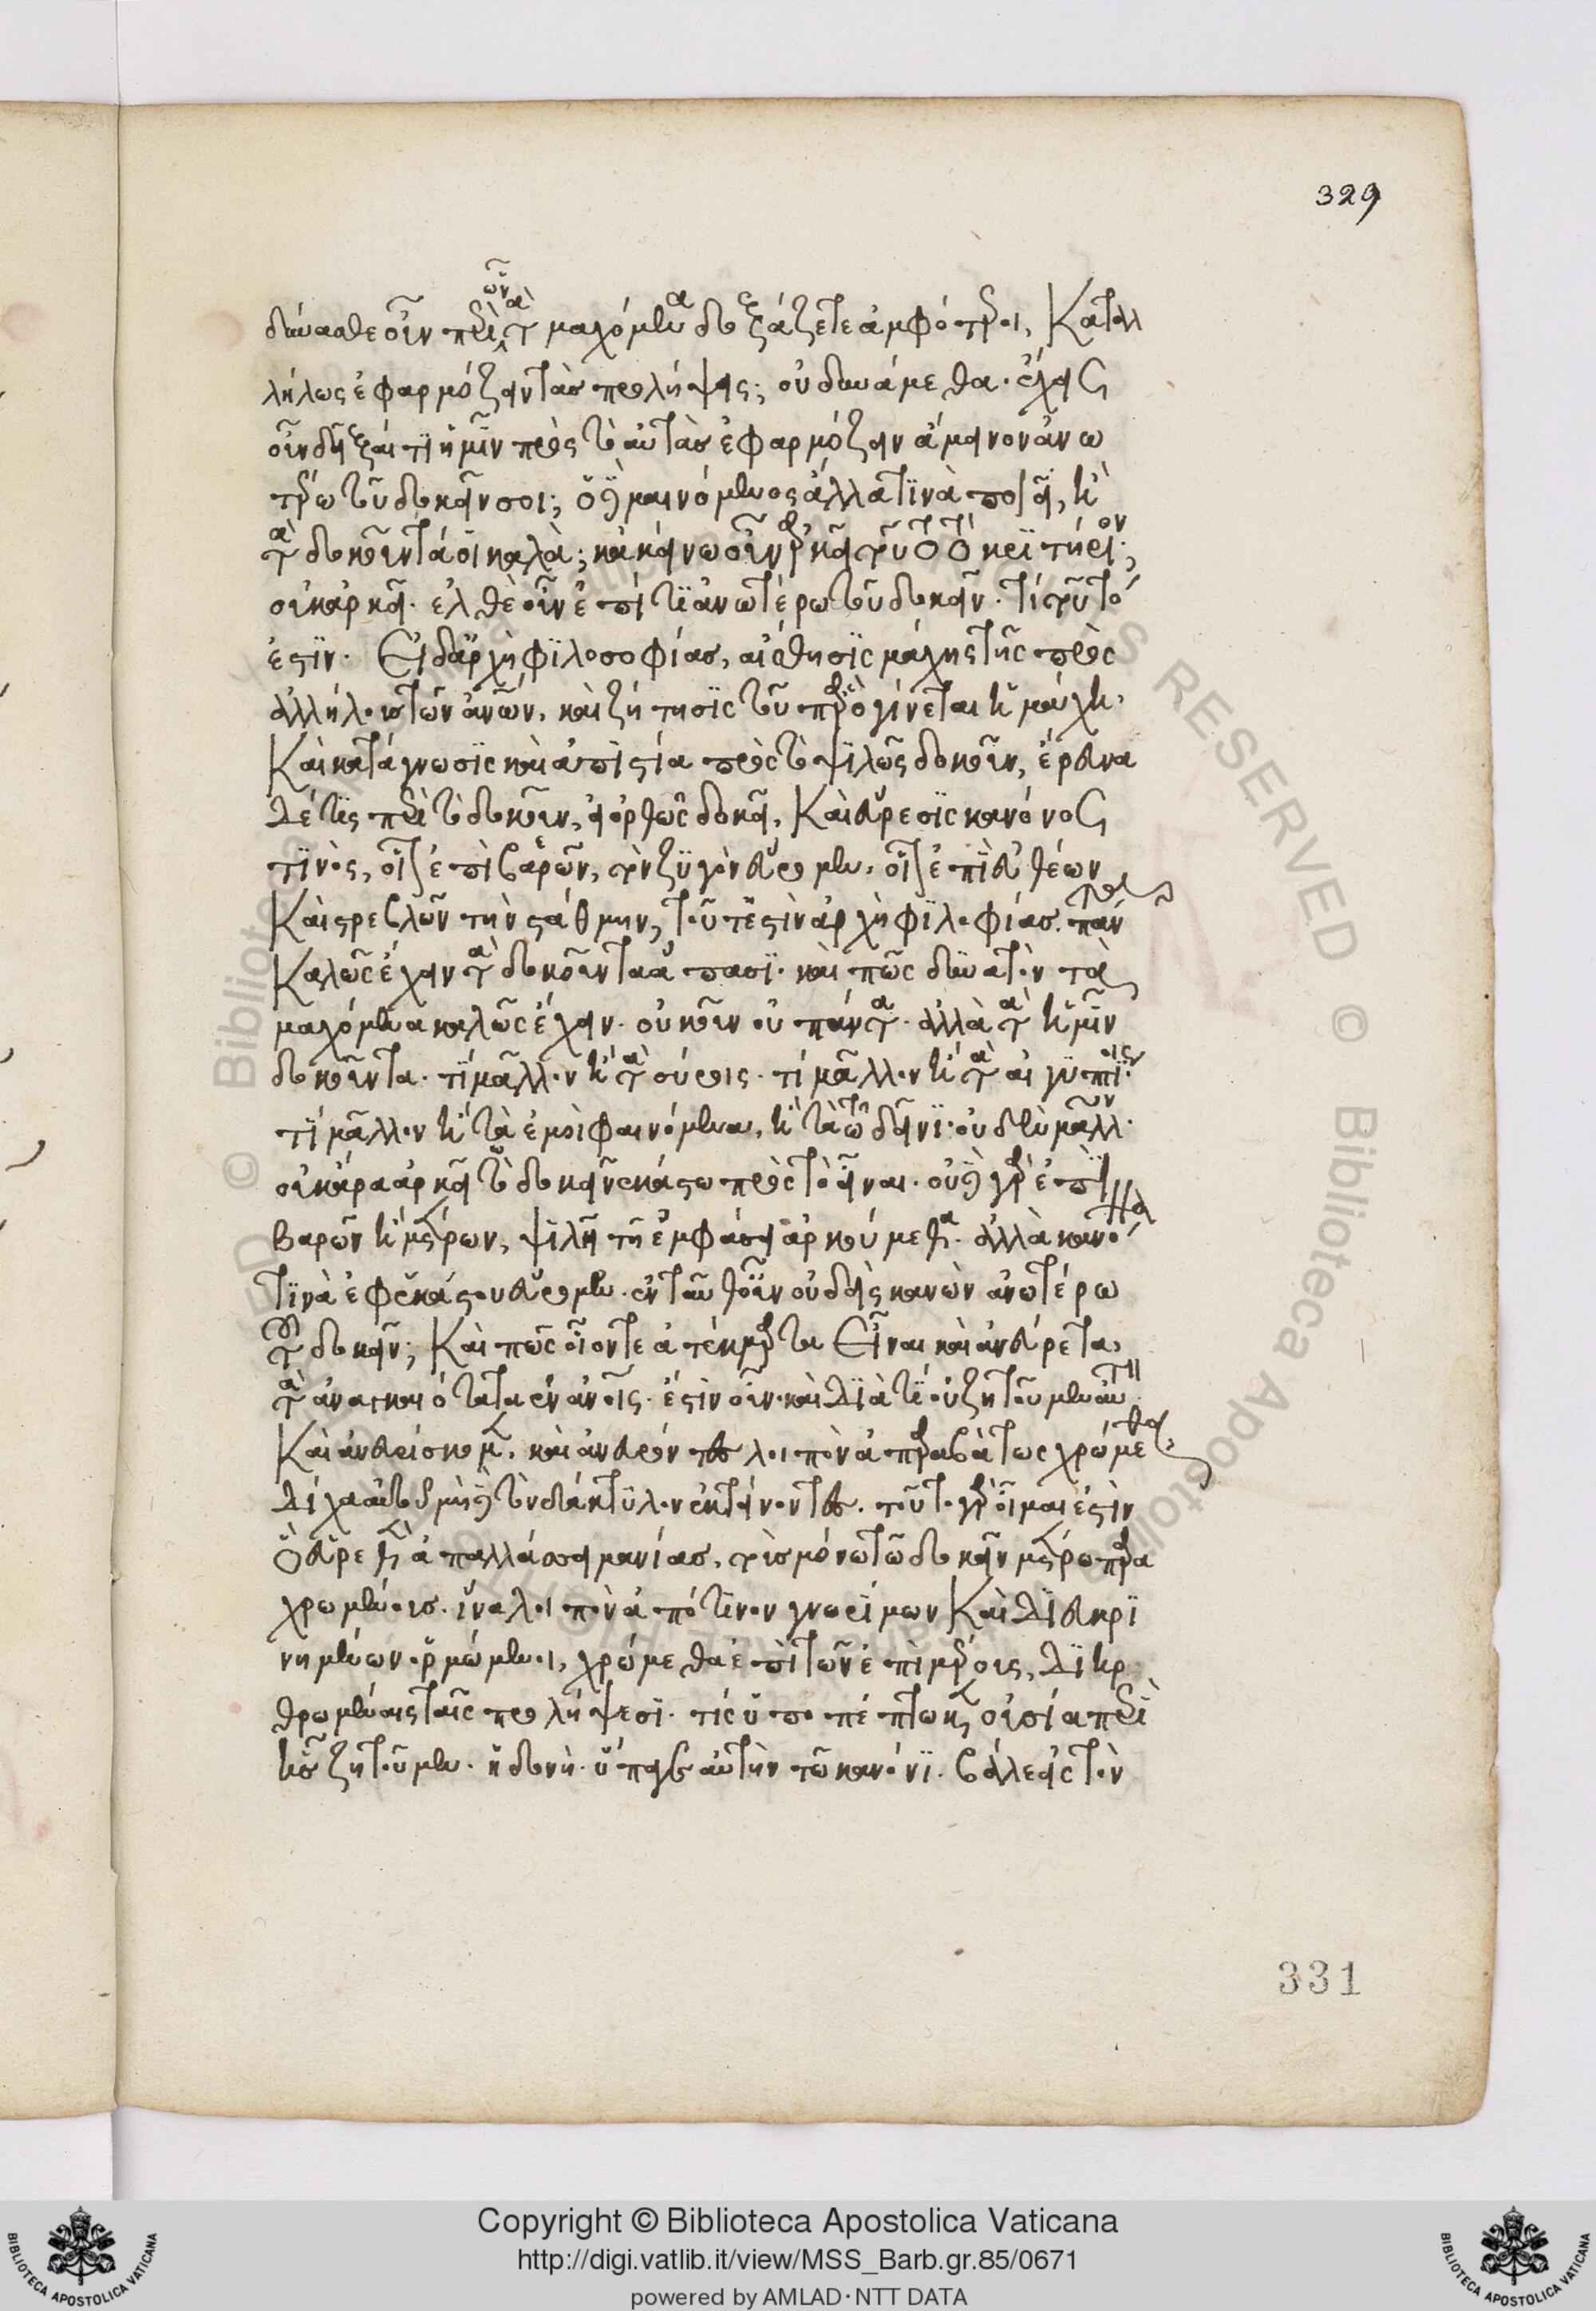 329
δύνασθε οὖν περὶ ὧν τὰ μαχόμενα δοξάζετε ἀμφότεροι, Καταλλ
λήλως ἐφαρμόζειν τὰς προλήψεις; οὐ δυνάμεθα. ἔχεις
οὖν δεῖξαί τι ἡμῖν πρὸς τὸ αὐτὰς ἐφαρμόζειν ἄμεινον ἀνω
τέρω τοῦ δοκεῖν σοι; ὁ δὲ μαινόμενος ἄλλα τινὰ ποιεῖ, ἢ
τὰ δοκοῦντά οἱ καλὰ; κἀκείνω οὖν ἀρκεῖ τοῦτο τὸ κριτήριον;
οὐκ ἀρκεῖ. ἐλθὲ οὖν ἐπί τι ἀνωτέρω τοῦ δοκεῖν. τί τοῦτό
ἐστιν. Εἰδ ἀρχὴ φιλοσοφίας, αἴσθησις μάχης τῆς πρὸς
ἀλλήλους τῶν ἀνων, καὶ ζήτησις τοῦ παρὸ γίνεται ἡ μάχη,
Καὶ κατάγνωσις καὶ ἀπιστία πρὸς τὸ ψιλῶς δοκοῦν, ἔρευνα
δέ τις περὶ τὸ δοκοῦν, εἰ ὀρθῶς δοκεῖ, Καὶ εὕρεσις κανόνος
τινὸς, οἷον ἐπὶ βαρῶν, τὸν ζυγὸν εὕρομεν, οἷον ἐπὶ εὐθέων
Καὶ στρεβλῶν τὴν στάθμην, τοῦτ ἔστιν ἀρχὴ φιλοφίας. πάντα
Καλῶς ἔχειν τὰ δοκοῦντα ἅπασι. καὶ πῶς δυνατὸν τὰ
μαχόμενα καλῶς ἔχειν. οὐκοῦν οὐ πάντα. ἀλλὰ τὰ ἡμῖν
δοκοῦντα. τί μᾶλλον ἢ τὰ σύροις. τί μᾶλλον ἢ τὰ αἰγυπτίοις
τί μᾶλλον ἢ τὰ ἐμοὶ φαινόμενα, ἢ τὰ τῶ δεῖνι. οὐδὲν μᾶλλον.
οὐκ ἄρα ἀρκεῖ τὸ δοκεῖν ἑκάστω πρὸς τὸ εἶναι. οὐδὲ γὰρ ἐπὶ
βαρῶν ἢ μέτρων, ψιλῆ τῆ ἐμφάσει ἀρκούμεθα. ἀλλὰ κανόνα
τινὰ ἐφ ἑκάστου εὕρομεν. ἐνταῦθ οὖν οὐδεὶς κανὼν ἀνωτέρω
τοῦ δοκεῖν; Καὶ πῶς οἷόν τε ἀτέκμαρτα Εἶναι καὶ ἀνεύρετα,
τὰ ἀναγκαιότατα ἐν ἀνοις. ἔστιν οὖν. καὶ διὰ τί οὐ ζητοῦμεν αὐτὸν
Καὶ ἀνευρίσκομεν. καὶ ἀνευρόντες λοιπὸν ἀπαραβάτως χρώμεθα,
δίχα αὐτοῦ μηδὲ τὸν δάκτυλον ἐκτείνοντες. τοῦτο γὰρ οἶμαι ἐστὶν
ὃ εὑρεθὲν ἀπαλλάσσει μανίας, τοὺς μόνω τῶ δοκεῖν μέτρω πάρα
χρωμένους. ἵνα λοιπὸν ἀπό τινων γνωρίμων Καὶ διευκρι
νημένων ὁρμώμενοι, χρώμεθα ἐπὶ τῶν ἐπὶ μέρους, διηρ
θρωμέναις ταῖς προλήψεσι. τίς ὑποπέπτωκεν οὐσία περὶ
ἧς ζητοῦμεν. ἡδονή. ὕπαγε αὐτὴν τῶ κανόνι. βάλε εἰς τὸν
331
Copyright © Biblioteca Apostolica Vaticana
http://digi.vatlib.it/view/MSS_Barb.gr.85/0671
powered by AMLAD·NTT DATA